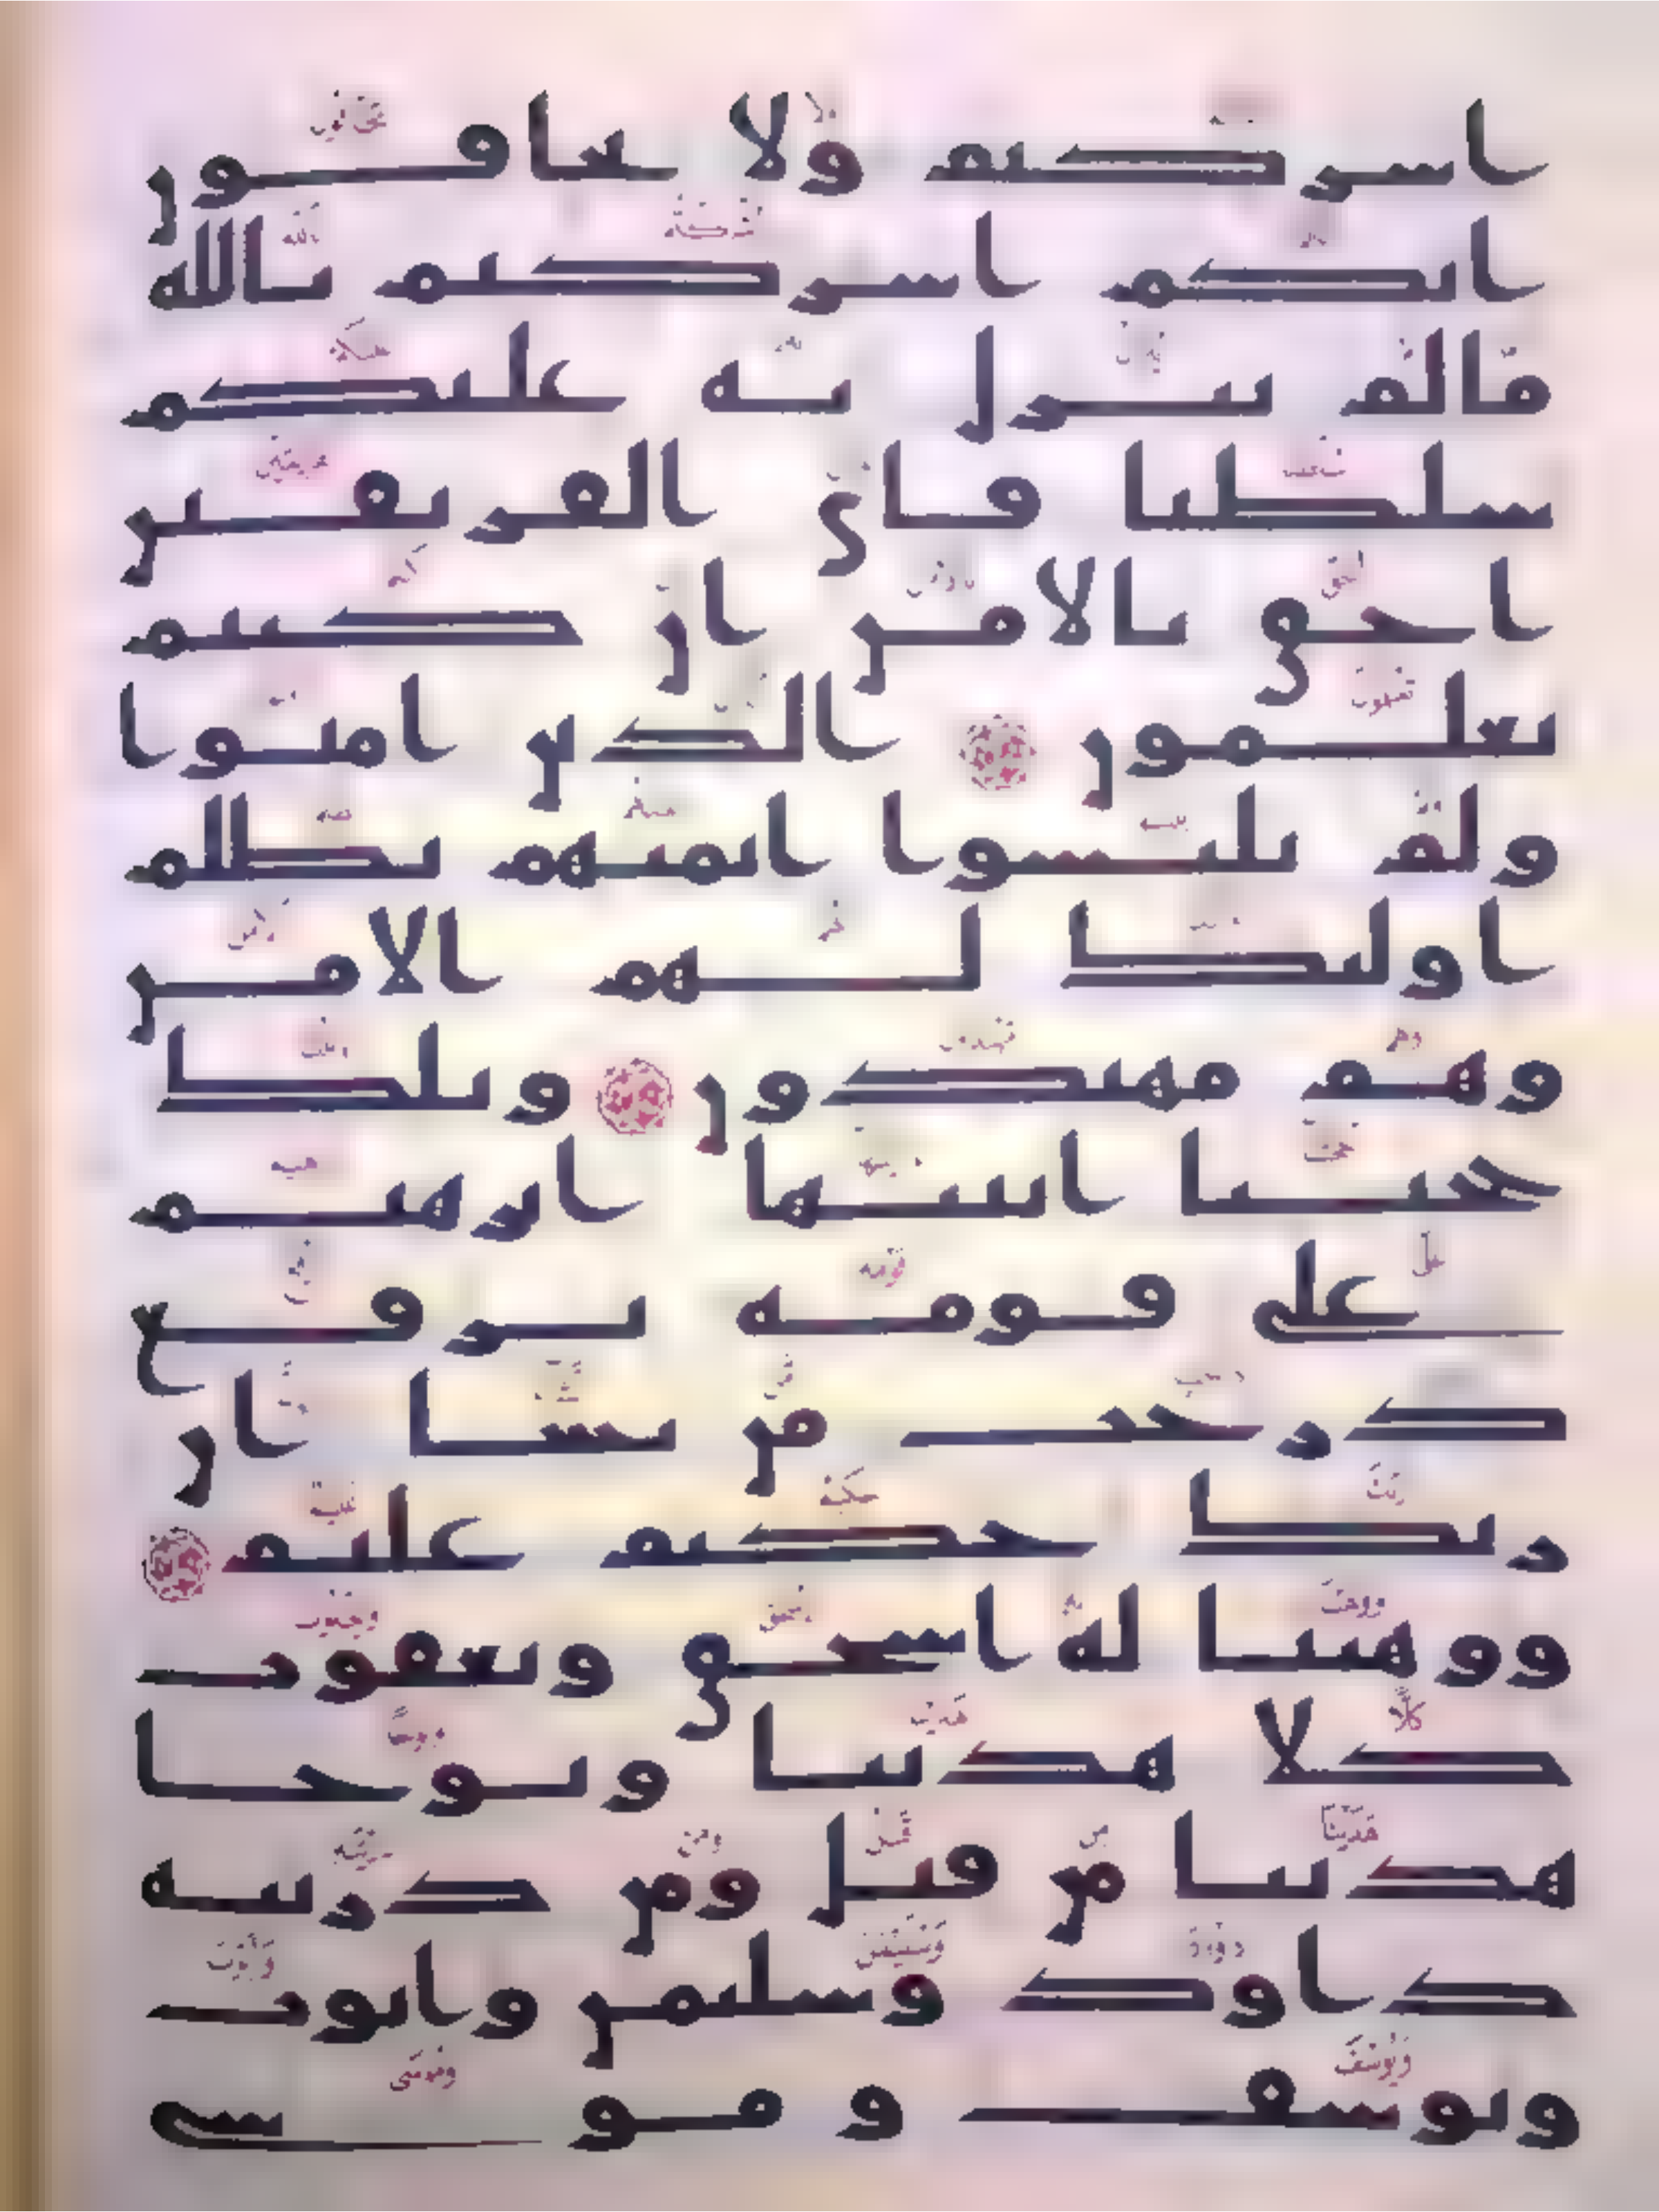 اشركتم ولا تخافون
انكم اشركتم بالله
ما لم ينزل به عليكم
سلطنا فاي الفريقين
احق بالامن ان كنتم
تعلمون الذين امنوا
ولم يلبسوا ايمنهم بظلم
اولئك لهم الامن
وهم مهتدون وتلك
حجتنا اتينها ابرهيم
على قومه نرفع
درجت من نشا ان
ربك حكيم عليم
ووهبنا له اسحق ويعقوب
كلا هدينا ونوحا
هدينا من قبل ومن ذريته
داود وسليمن وايوب
ويوسف وموسى